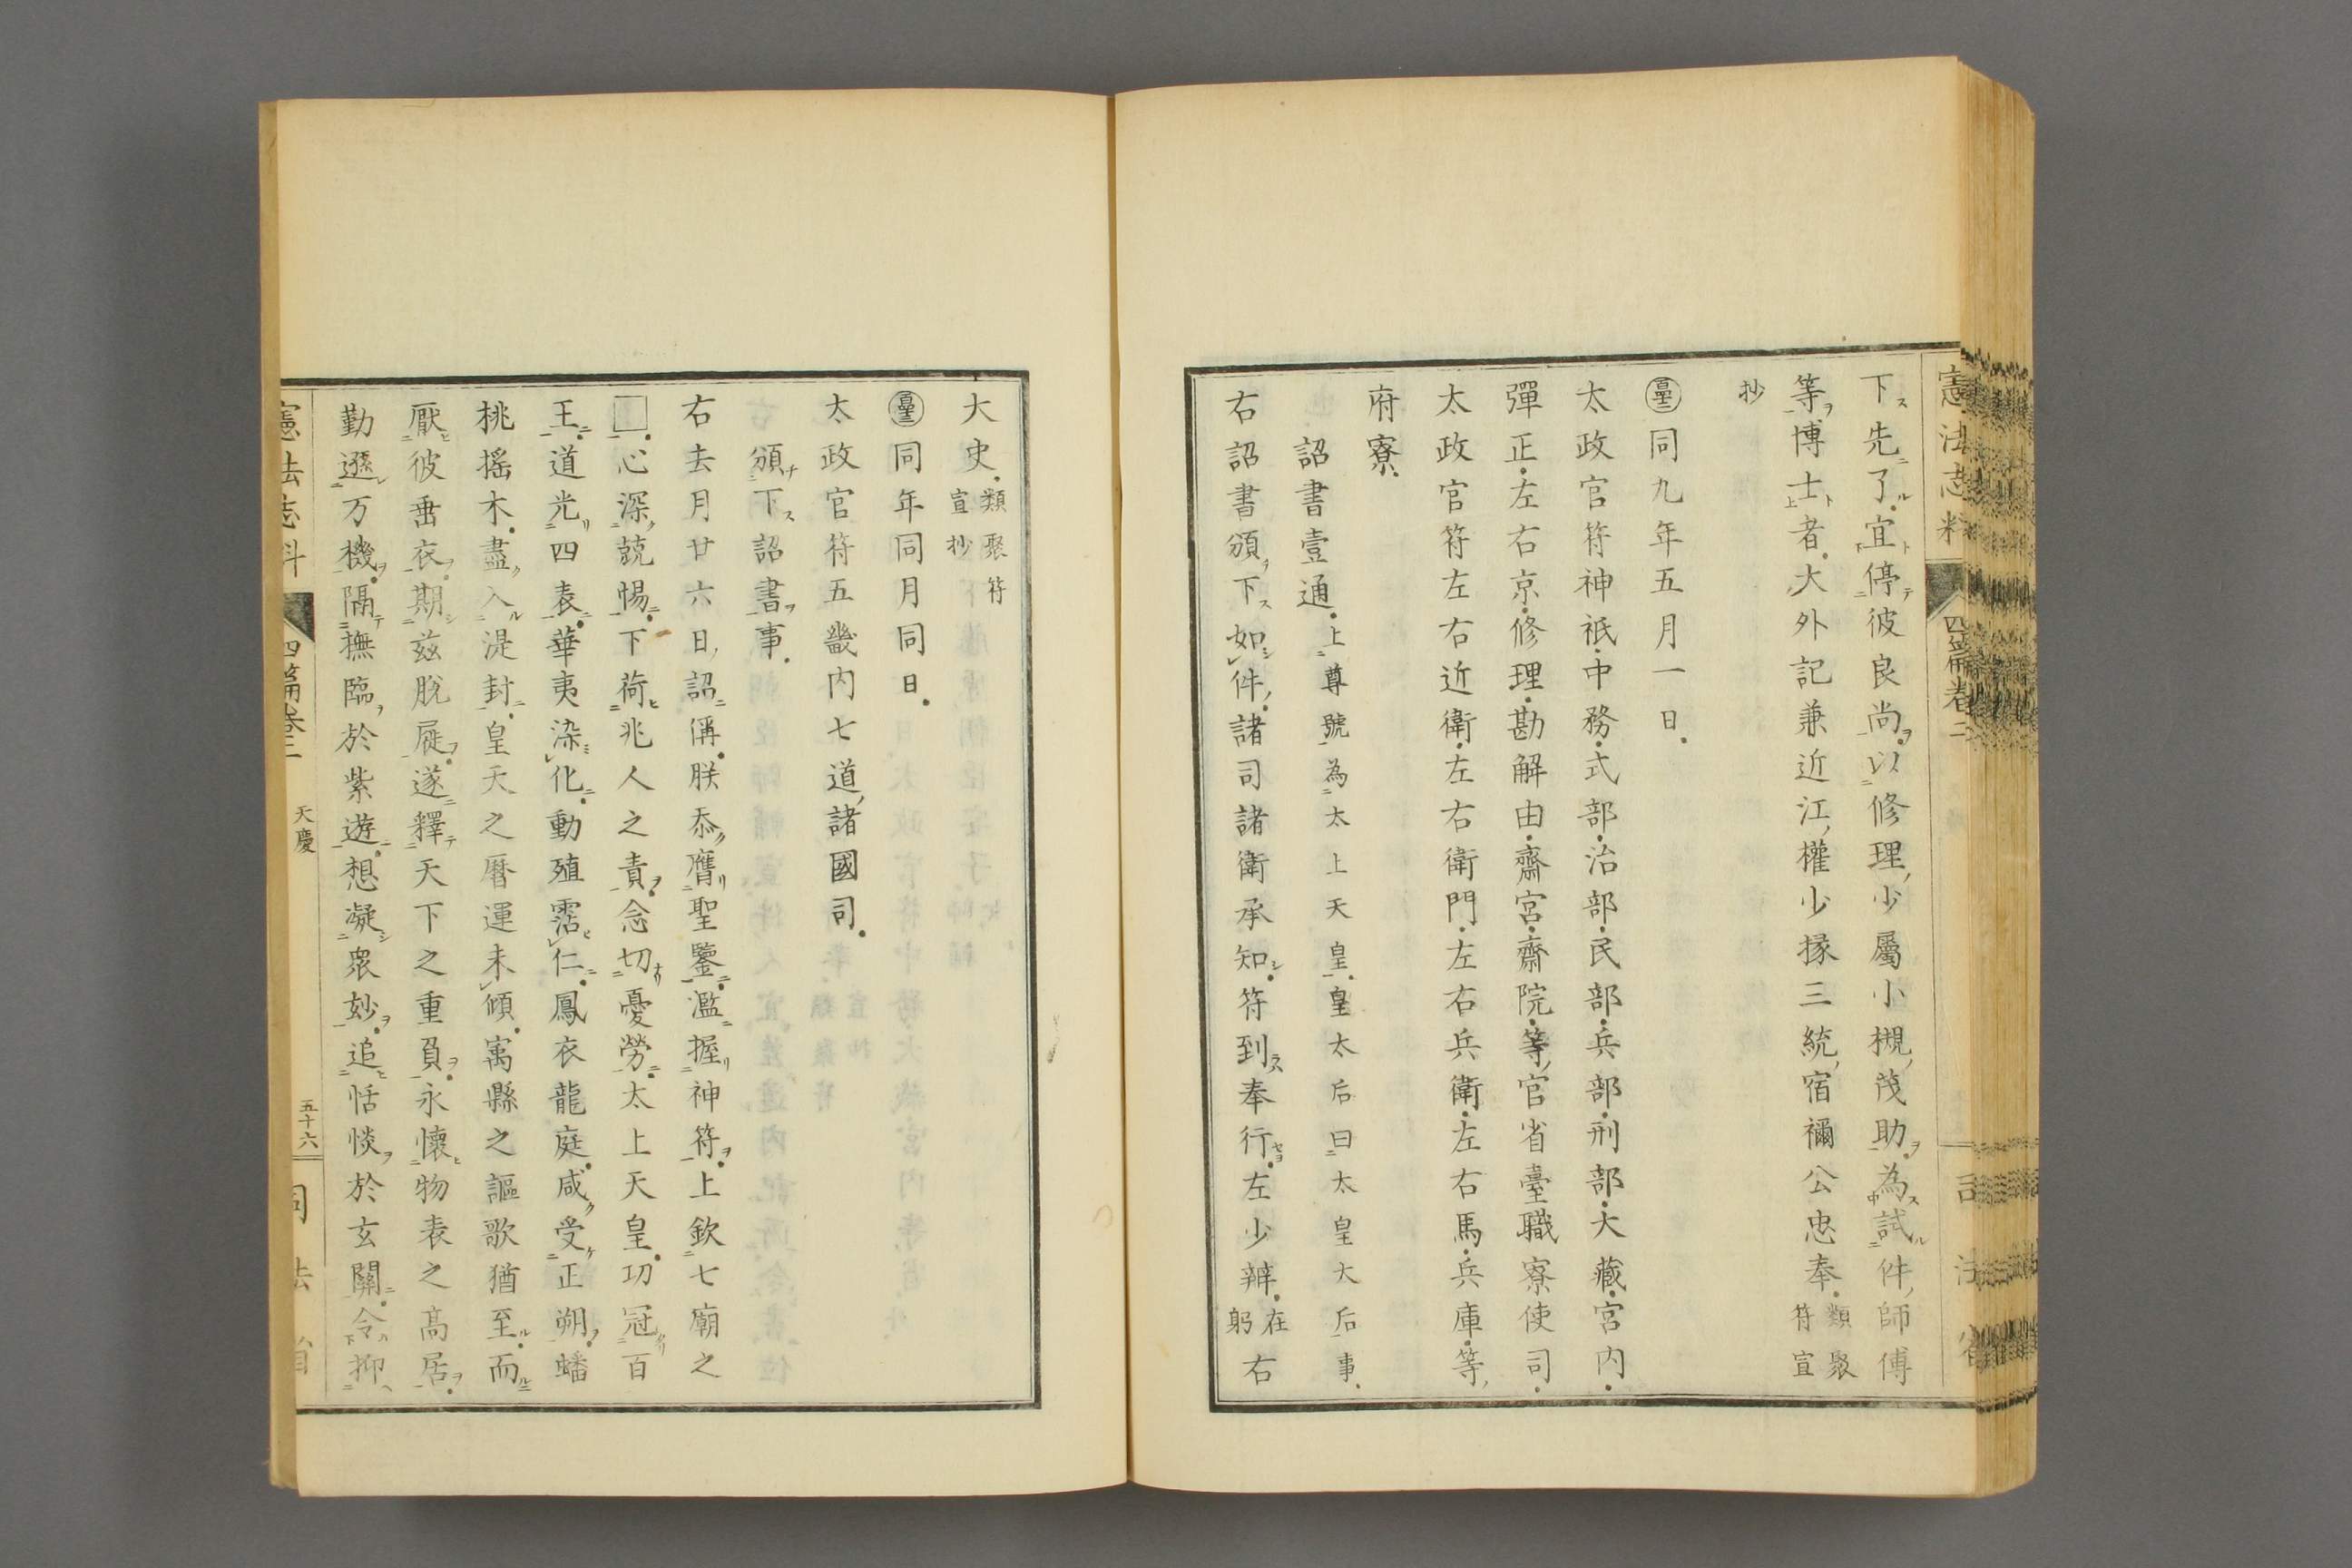 憲法志料
四篇卷二
司法省
下先了宜停彼良尚以修理少屬小槻茂助為試件師傅
等博士者大外記兼近江權少掾三統宿禰公忠奉類聚符宣
抄
同九年五月一日
太政官符神祇中務式部治部民部兵部刑部大藏宮内
彈正左右京修理勘解由齋宮齋院等官省臺職寮使司
太政官符左右近衛左右衛門左右兵衛左右馬兵庫等
府寮
詔書壹通上尊號為太上天皇皇太后曰太皇大后事
右詔書頒下如件諸司諸衛承知符到奉行左少辨在躬右
大史類聚符宣抄
同年同月同日
太政官符五畿内七道諸國司
頒下詔書事
右去月廿六日詔偁朕忝膺聖鑒濫握神符上欽七廟之
□心深兢惕下荷兆人之責念切憂勞太上天皇功冠百
王道光四表華夷染化動殖霑仁鳳衣龍庭咸受正朔蟠
桃搖木盡入湜封皇天之曆運未傾寓縣之謳歌猶至而
厭彼垂衣期茲脫屣遂釋天下之重負永懷物表之高居
勤遜万機隔撫臨於紫遊想凝衆妙追恬惔於玄關令抑
憲法志料
四篇卷二
天慶
五十六
司法省